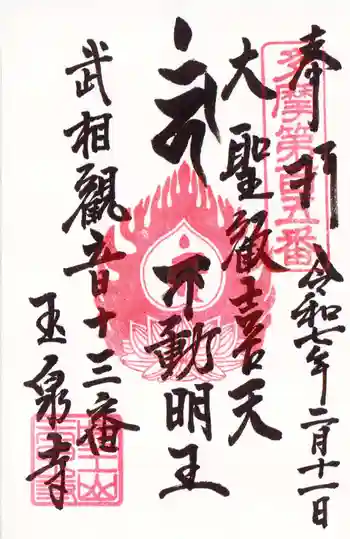 奉拝 令和七年二月十一日
多摩第百五番
大聖歓喜天
不動明王
武相観音十三番
玉泉寺